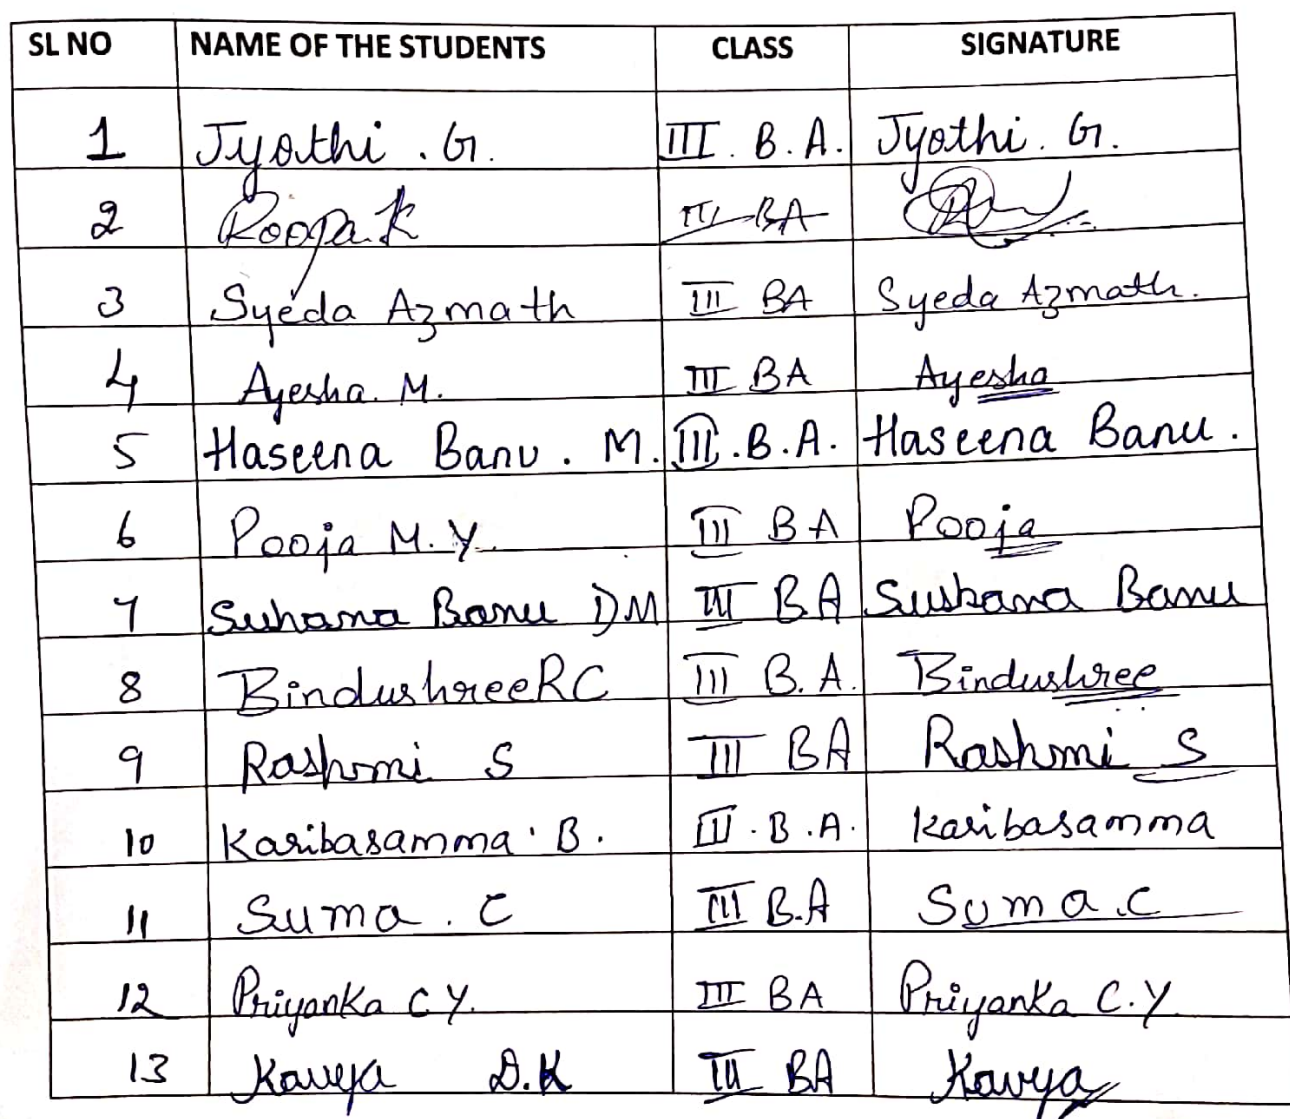 SL NO NAME OF THE STUDENTS CLASS SIGNATURE
1 Jyothi . G. III . B . A. Jyothi . G.
2 Roopa K III BA
3 Syeda Azmath III BA Syeda Azmath.
4 Ayesha. M. III BA Ayesha
5 Haseena Banu . M. III . B . A. Haseena Banu .
6 Pooja M. Y. III BA Pooja
7 Suhana Banu DM III BA Suhana Banu
8 Bindushree RC III B. A. Bindushree
9 Rashmi S III BA Rashmi S
10 Karibasamma . B . III . B . A. Karibasamma
11 Suma . C III B.A Suma .C
12 Priyanka C Y. III BA Priyanka C.Y
13 Kavya D.K III BA Kavya